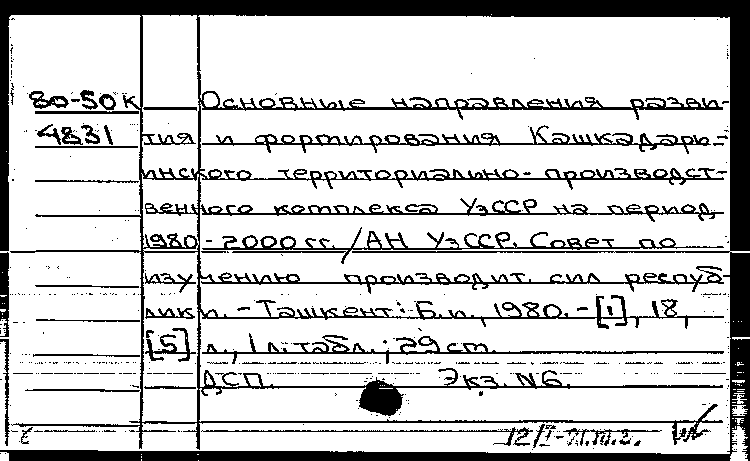 80-50к Основные направления разви-
4831 тия и формирования Кашкадарь-
инского территориально-производст-
венного комплекса УзССР на период
1980-2000 гг. / АН УзССР. Совет по
изучению производит. сил респуб-
лики. - Ташкент: Б.и., 1980. - [1], 18,
[5] л., 1 л. табл.; 29 см.
ДСП. Экз. N6.